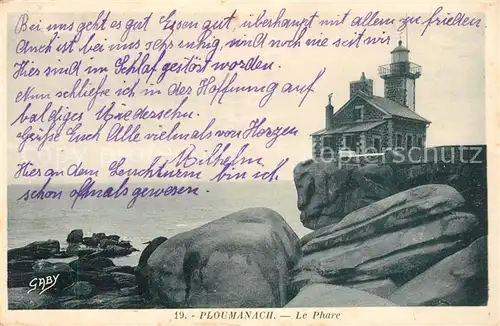 Bei uns geht es gut Essen gut, überhaupt mit allem zu frieden.
Auch ist bei uns sehr ruhig, sind noch nie seit wir
Hier sind im Schlaf gestöst worden.
Nun schließe ich in der Hoffnung auf
baldiges Niedersehn.
Grüße Euch Alle vielmals von Herzen
Wilhelm.
Hier an dem Leuchtturm bin ich
schon oftmals gewesen.
GABY
19. - PLOUMANACH. — Le Phare